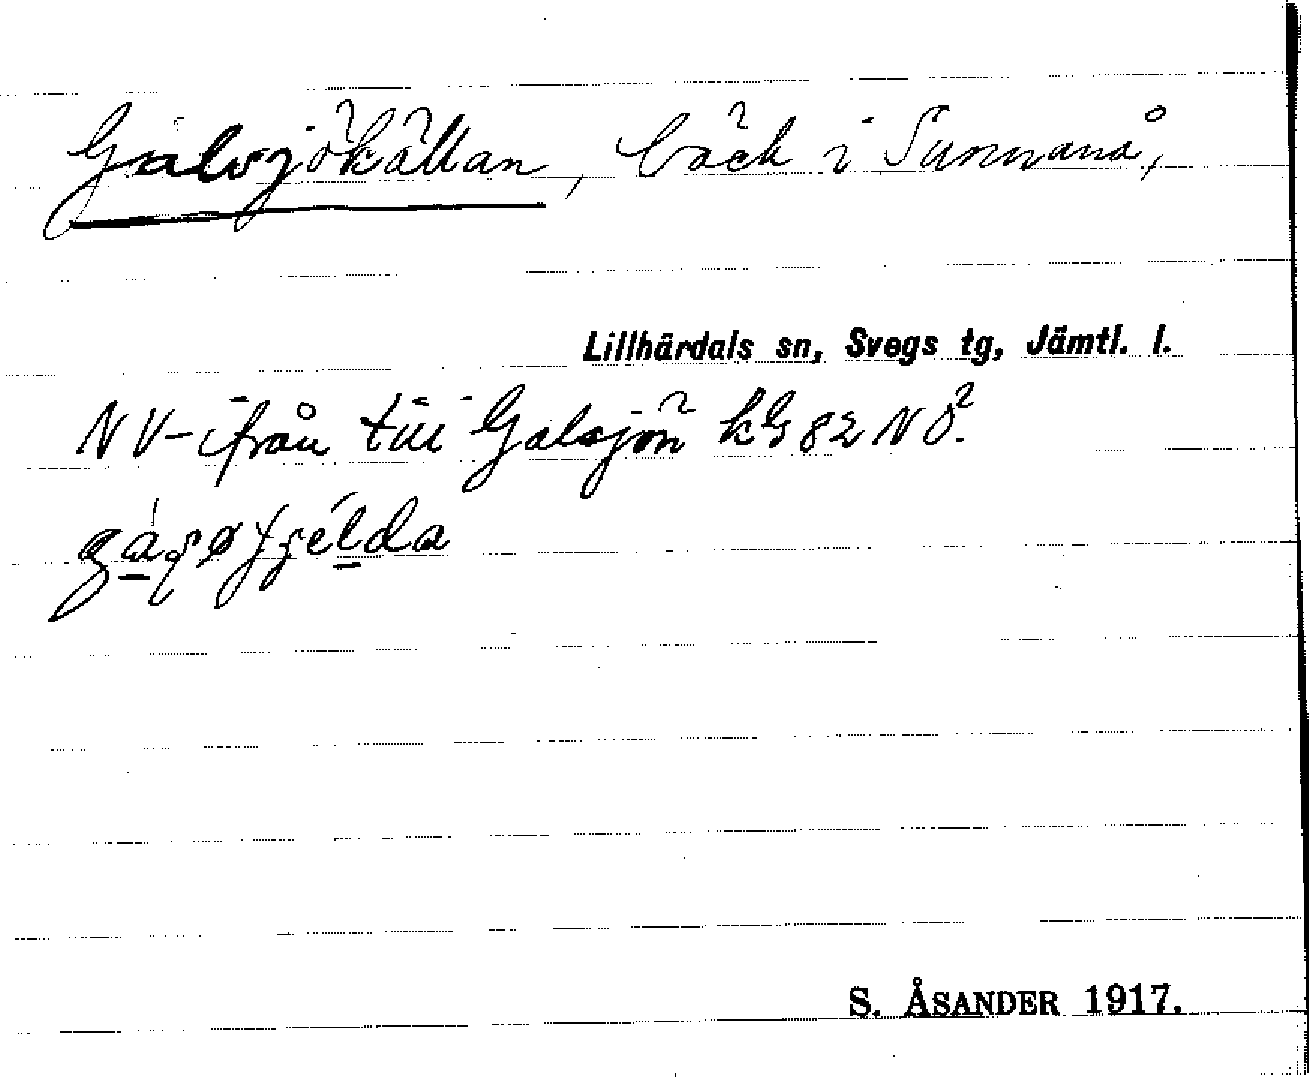 Galsjökällan, bäck i Sunnanå,
Lillhärdals sn, Svegs tg, Jämtl. l.
NV-ifrån till Galsjön kG 82 NO².
S. ÅSANDER 1917.